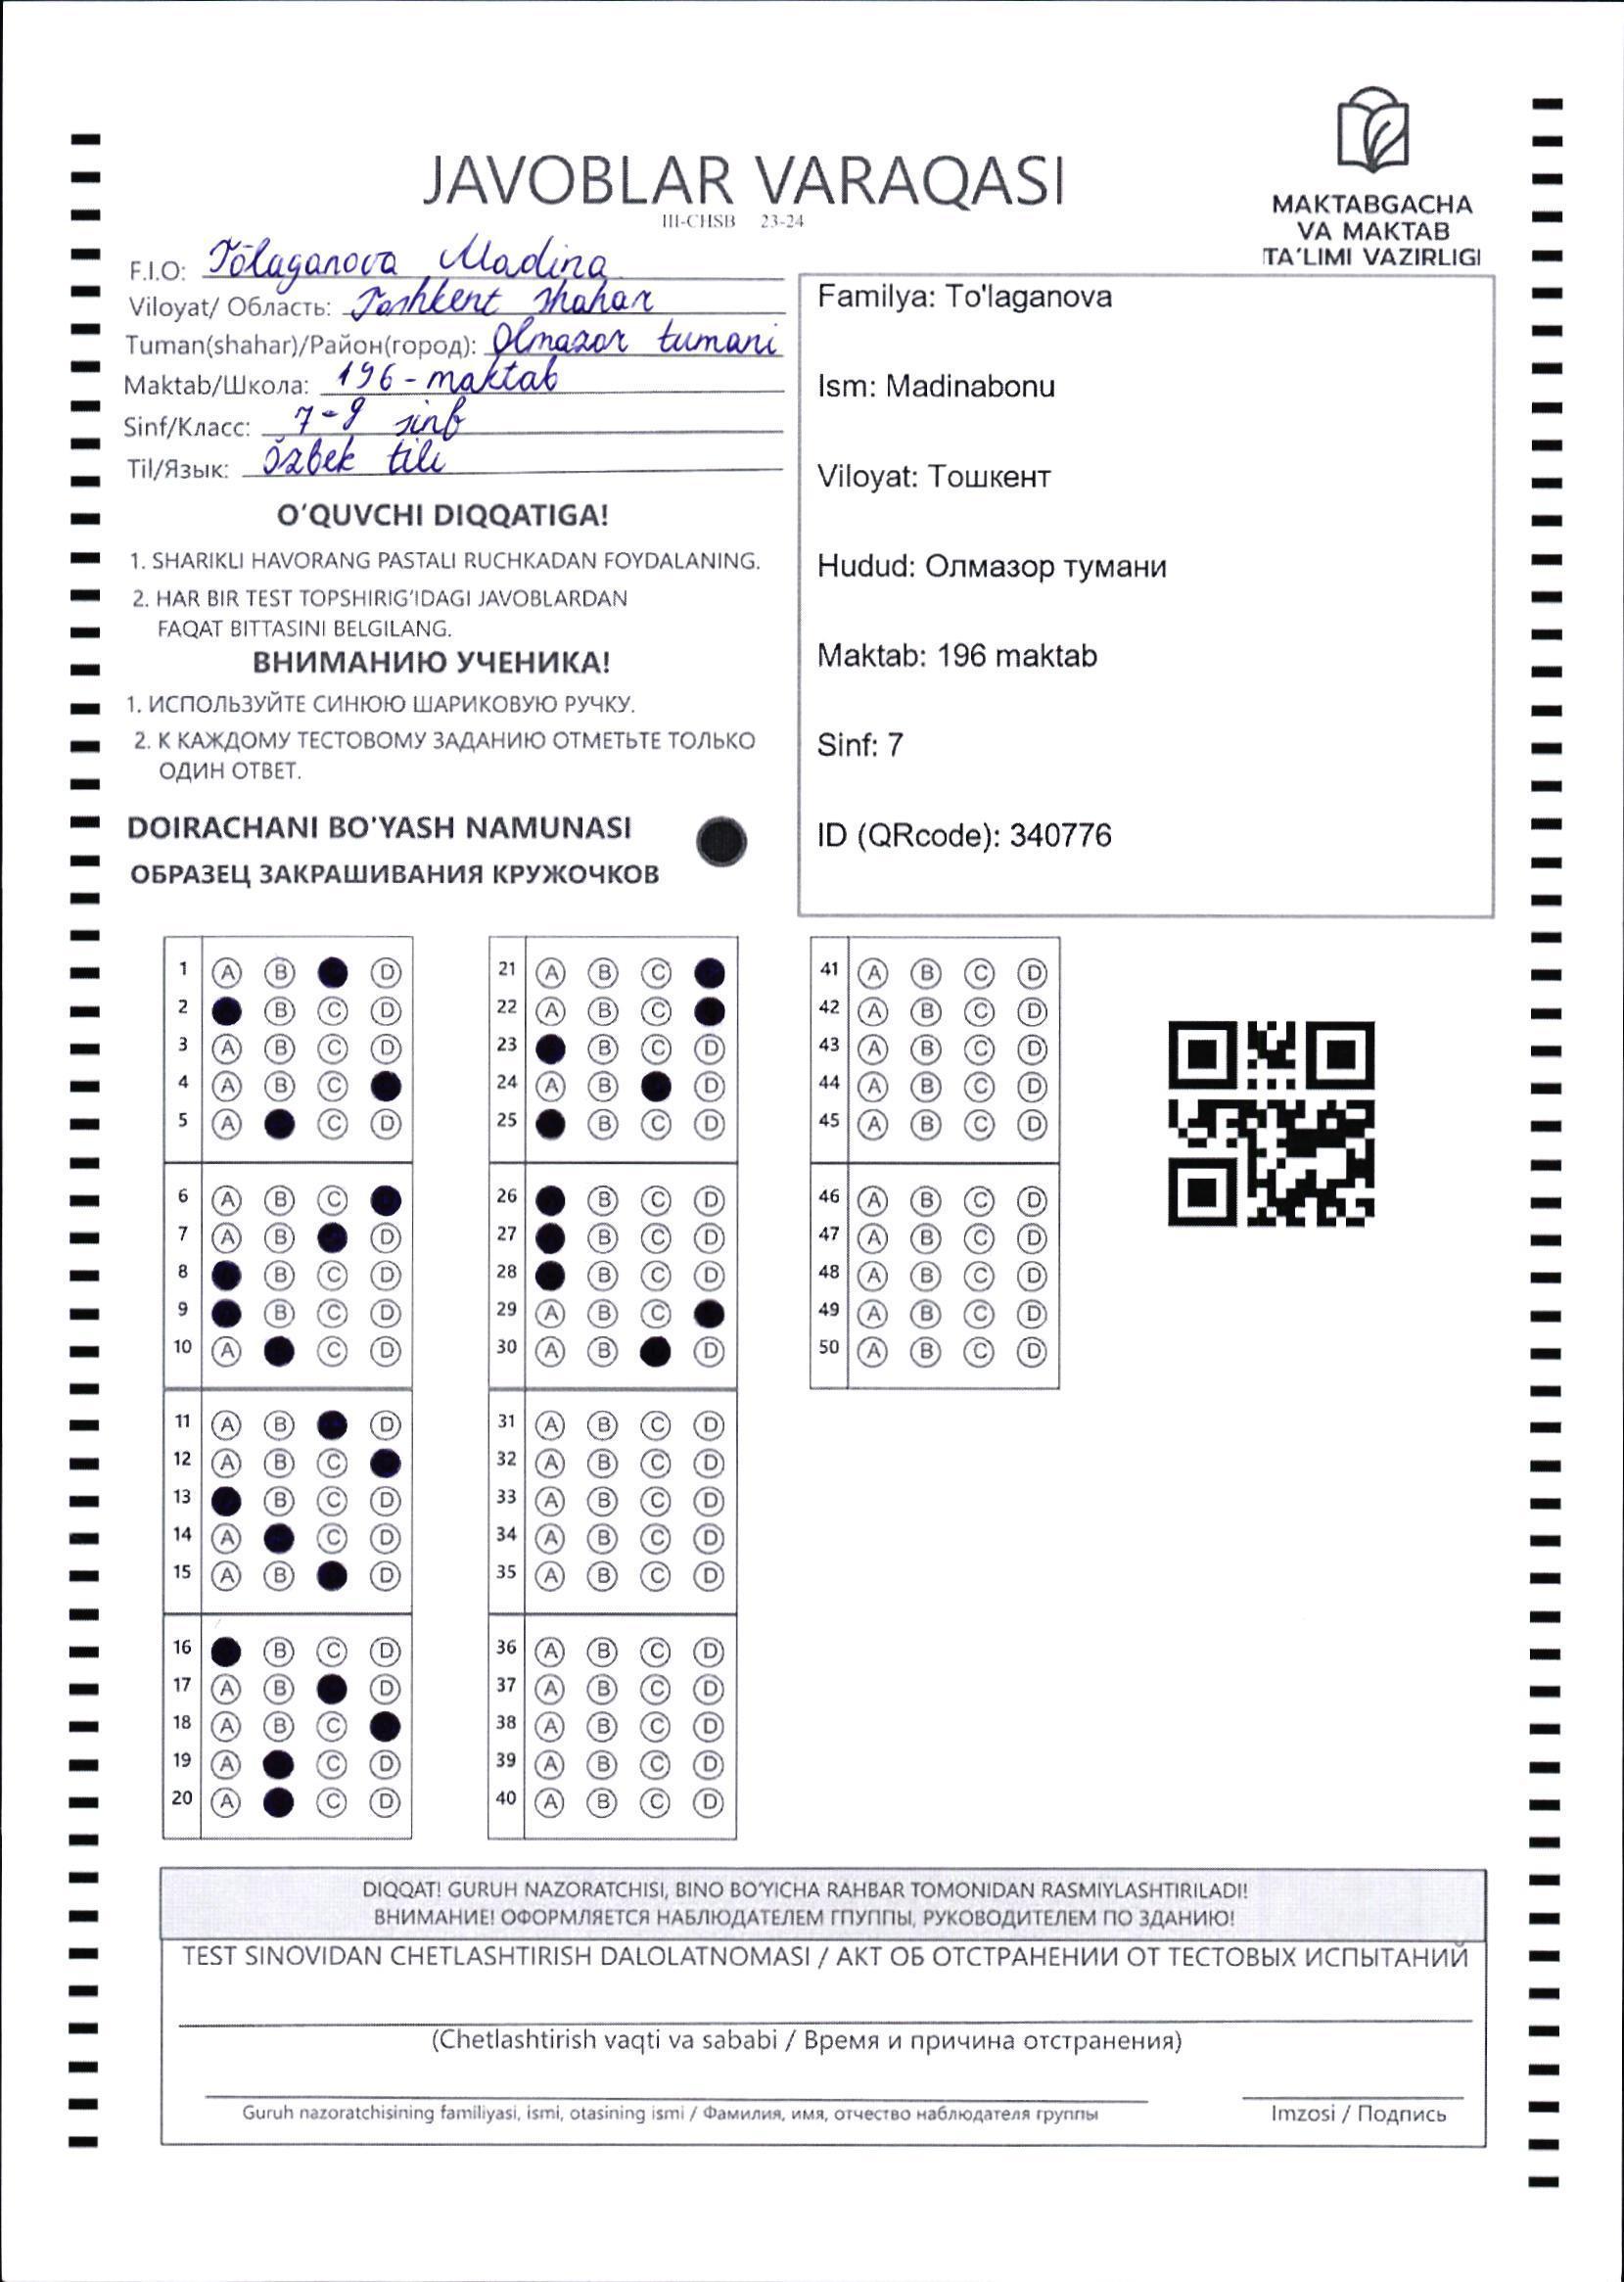 JAVOBLAR VARAQASI
III-CHSB 23-24
MAKTABGACHA
VA MAKTAB
TA'LIMI VAZIRLIGI
F.I.O: Tõlaganova Madina
Viloyat/ Область: Toshkent shahar
Tuman(shahar)/Район(город): Olmazor tumani
Maktab/Школа: 196-maktab
Sinf/Класс: 7-9 sinf
Til/Язык: õzbek tili
O'QUVCHI DIQQATIGA!
1. SHARIKLI HAVORANG PASTALI RUCHKADAN FOYDALANING.
2. HAR BIR TEST TOPSHIRIG'IDAGI JAVOBLARDAN
FAQAT BITTASINI BELGILANG.
ВНИМАНИЮ УЧЕНИКА!
1. ИСПОЛЬЗУЙТЕ СИНЮЮ ШАРИКОВУЮ РУЧКУ.
2. К КАЖДОМУ ТЕСТОВОМУ ЗАДАНИЮ ОТМЕТЬТЕ ТОЛЬКО
ОДИН ОТВЕТ.
DOIRACHANI BO'YASH NAMUNASI
ОБРАЗЕЦ ЗАКРАШИВАНИЯ КРУЖОЧКОВ
Familya: To'laganova
Ism: Madinabonu
Viloyat: Тошкент
Hudud: Олмазор тумани
Maktab: 196 maktab
Sinf: 7
ID (QRcode): 340776
1 A B D
2 B C D
3 A B C D
4 A B C
5 A C D
6 A B C
7 A B D
8 B C D
9 B C D
10 A C D
11 A B D
12 A B C
13 B C D
14 A C D
15 A B D
16 B C D
17 A B D
18 A B C
19 A C D
20 A C D
21 A B C
22 A B C
23 B C D
24 A B D
25 B C D
26 B C D
27 B C D
28 B C D
29 A B C
30 A B D
31 A B C D
32 A B C D
33 A B C D
34 A B C D
35 A B C D
36 A B C D
37 A B C D
38 A B C D
39 A B C D
40 A B C D
41 A B C D
42 A B C D
43 A B C D
44 A B C D
45 A B C D
46 A B C D
47 A B C D
48 A B C D
49 A B C D
50 A B C D
DIQQAT! GURUH NAZORATCHISI, BINO BO'YICHA RAHBAR TOMONIDAN RASMIYLASHTIRILADI!
ВНИМАНИЕ! ОФОРМЛЯЕТСЯ НАБЛЮДАТЕЛЕМ ГПУППЫ, РУКОВОДИТЕЛЕМ ПО ЗДАНИЮ!
TEST SINOVIDAN CHETLASHTIRISH DALOLATNOMASI / АКТ ОБ ОТСТРАНЕНИИ ОТ ТЕСТОВЫХ ИСПЫТАНИЙ
(Chetlashtirish vaqti va sababi / Время и причина отстранения)
Guruh nazoratchisining familiyasi, ismi, otasining ismi / Фамилия, имя, отчество наблюдателя группы
Imzosi / Подпись